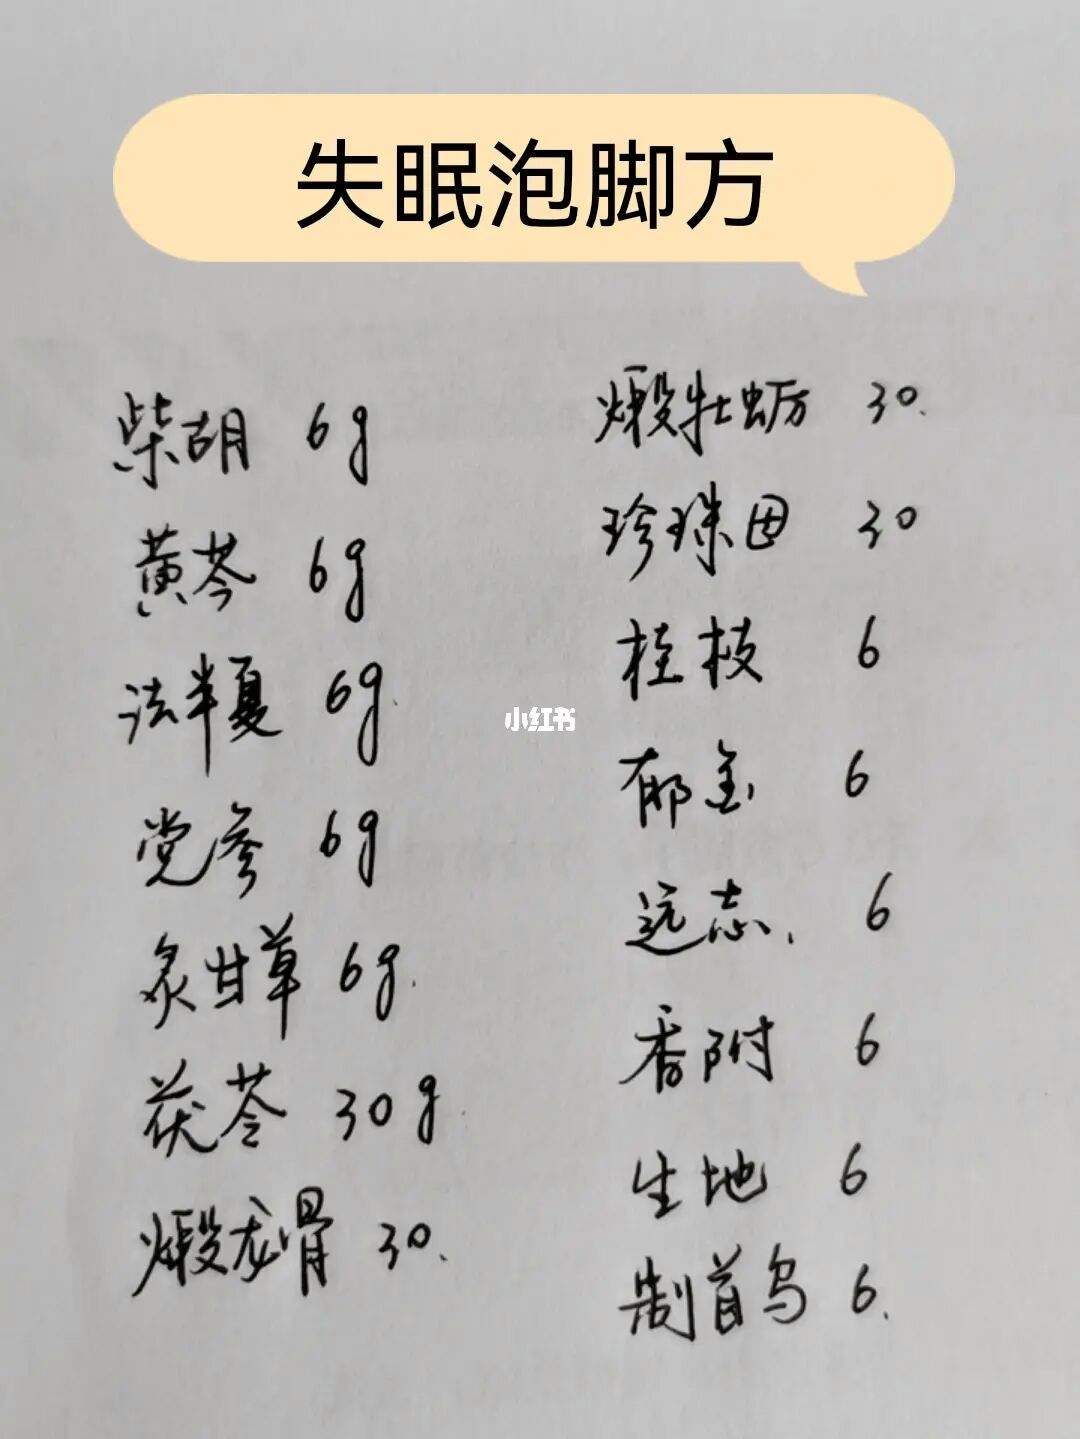 失眠泡脚方
柴胡 6g
黄芩 6g
法半夏 6g.
党参 6g
炙甘草 6g.
茯苓 30g.
煅龙骨 30.
煅牡蛎 30.
珍珠母 30
桂枝 6
郁金 6
远志. 6
香附 6
生地 6
制首乌 6.
小红书